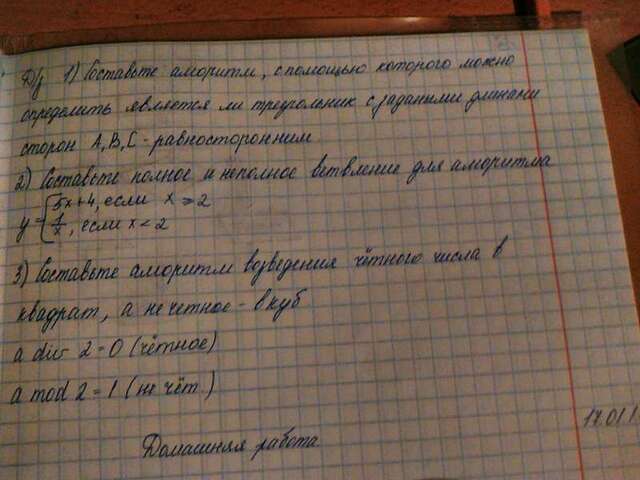 Д/з 1) Составьте алгоритм, с помощью которого можно
определить является ли треугольник с заданными длинами
сторон А, В, С - равносторонним
2) Составьте полное и неполное ветвление для алгоритма
y = { 5x+4, если x ⩾ 2
1/x, если x < 2
3) Составьте алгоритм возведения чётного числа в
квадрат, а не четное - в куб
a div 2 = 0 (чётное)
a mod 2 = 1 (не чёт.)
Домашняя работа
17.01.1